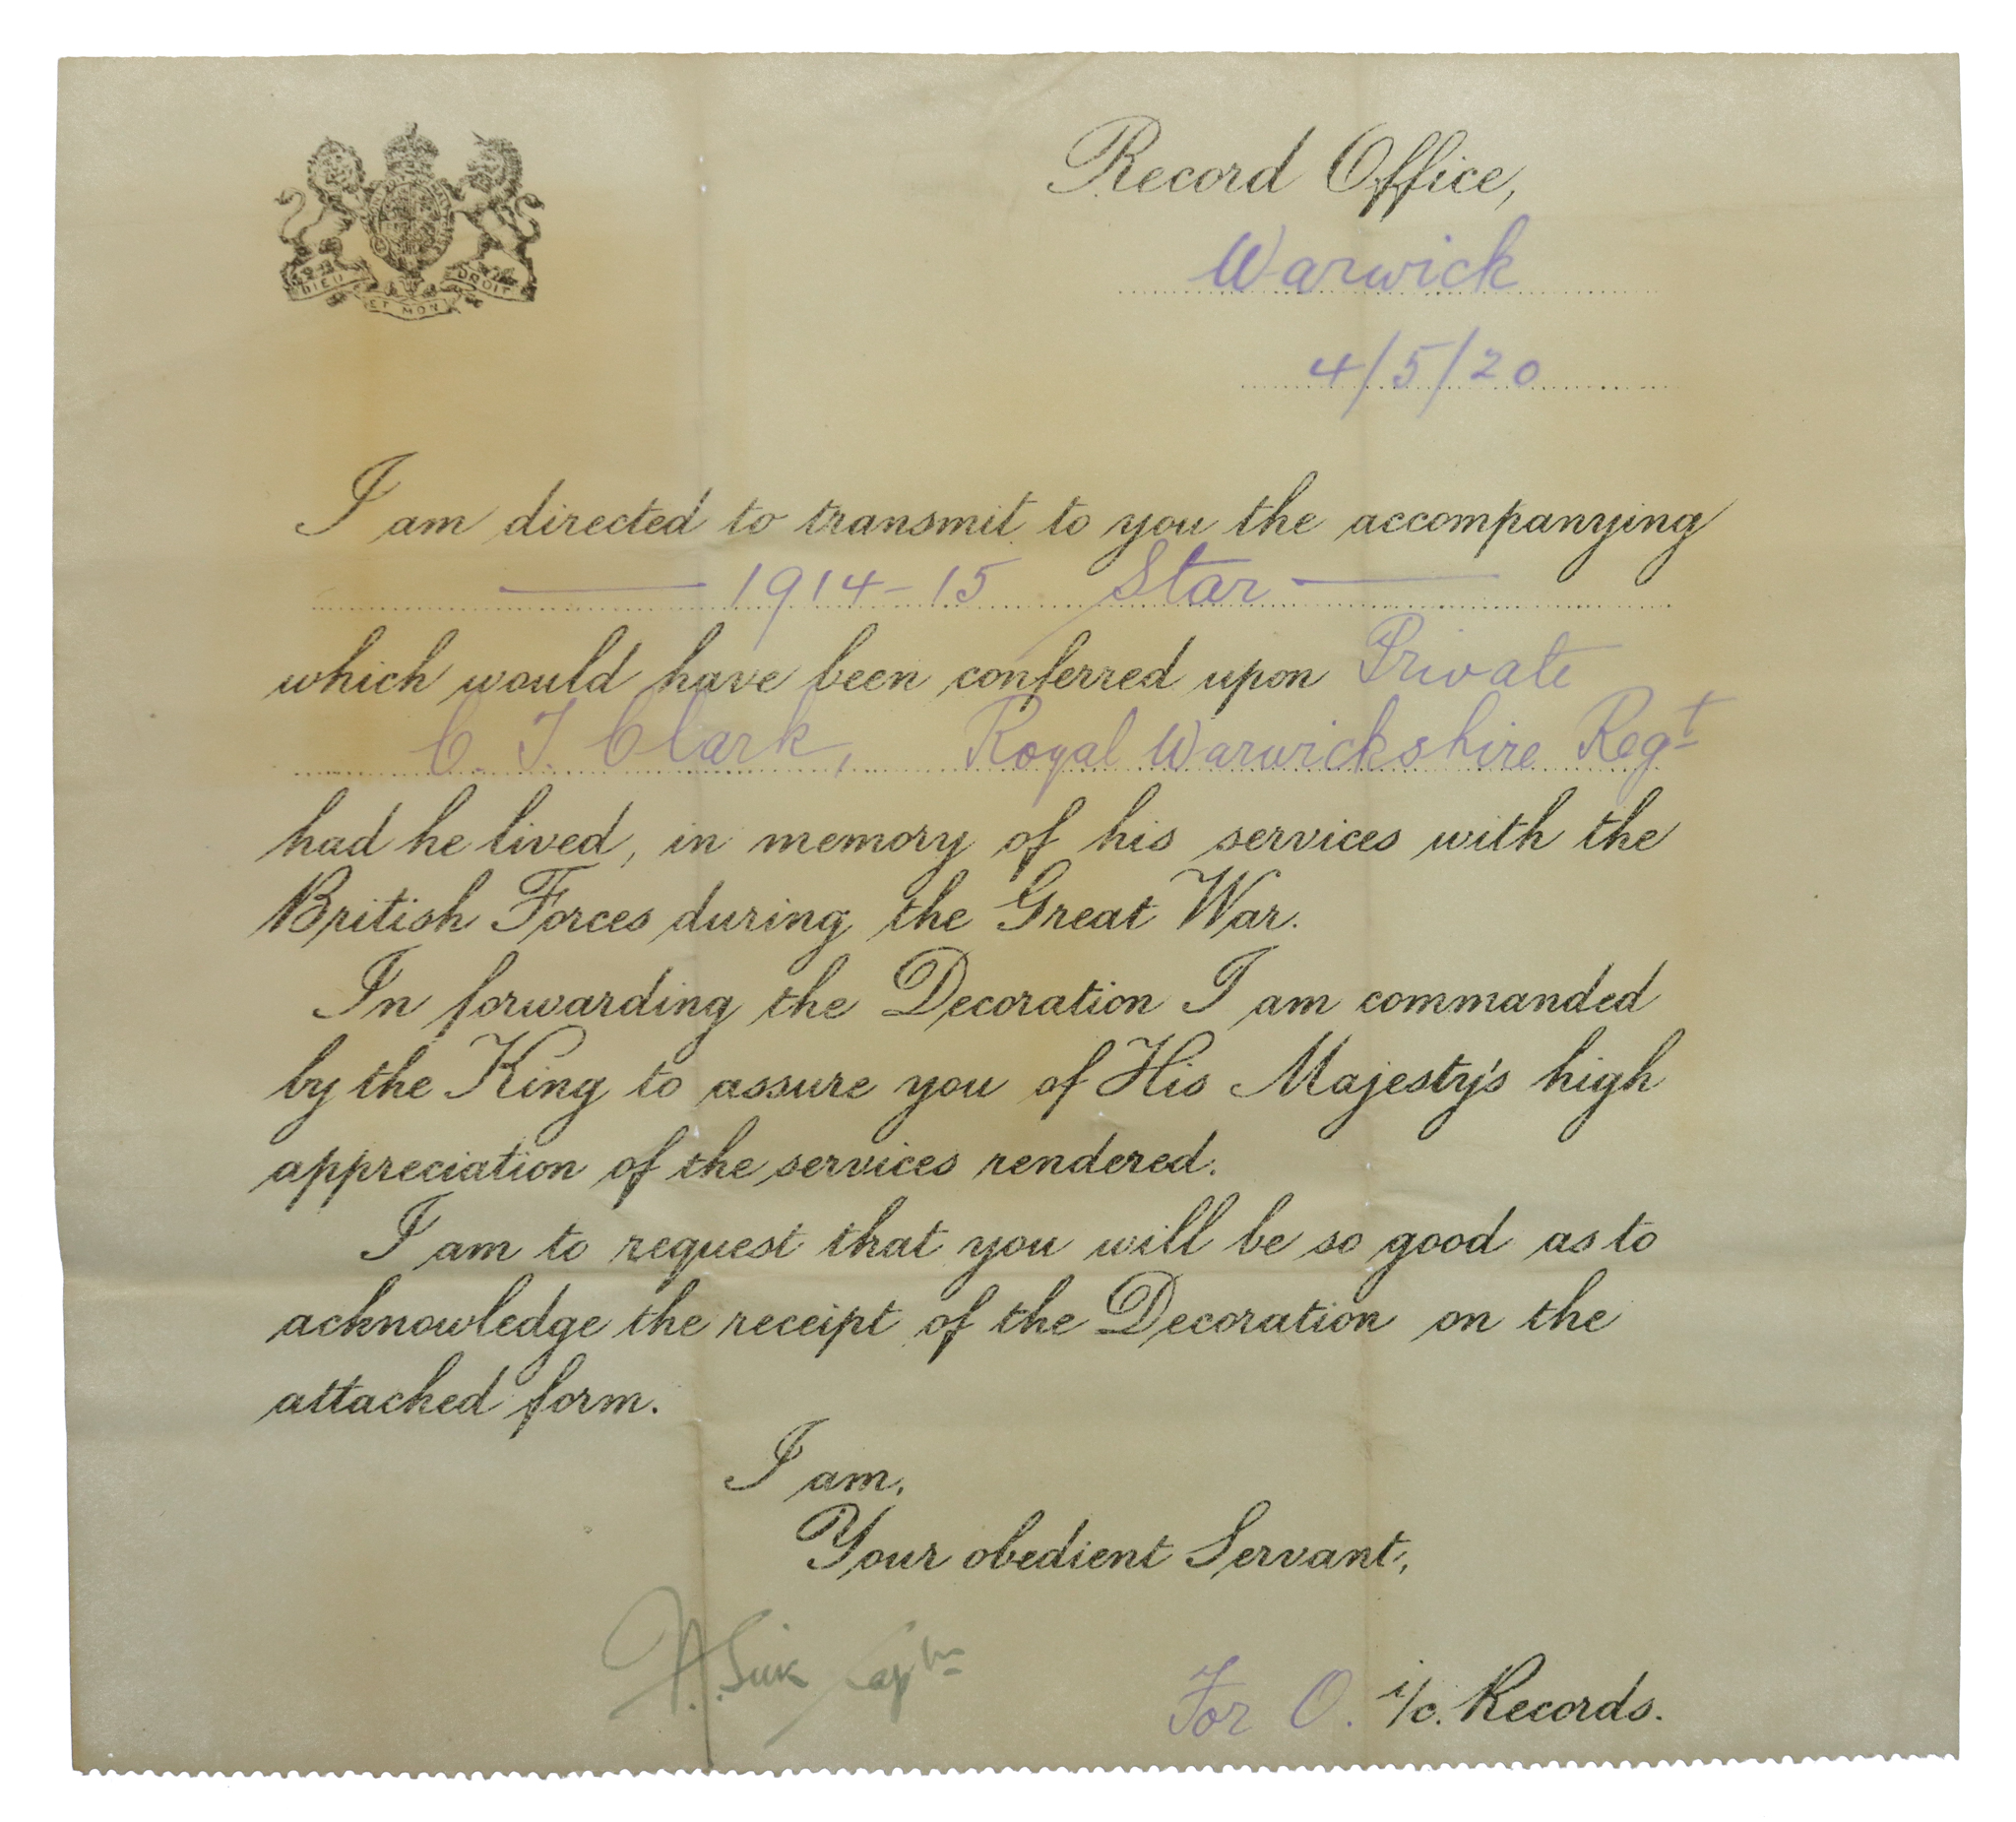 DIEU ET MON DROIT
Record Office,
Warwick
4/5/20
I am directed to transmit to you the accompanying
— 1914-15 Star —
which would have been conferred upon Private
C. T. Clark, Royal Warwickshire Regt
had he lived, in memory of his services with the
British Forces during the Great War.
In forwarding the Decoration I am commanded
by the King to assure you of His Majesty's high
appreciation of the services rendered.
I am to request that you will be so good as to
acknowledge the receipt of the Decoration on the
attached form.
I am,
Your obedient Servant,
For O. i/c. Records.